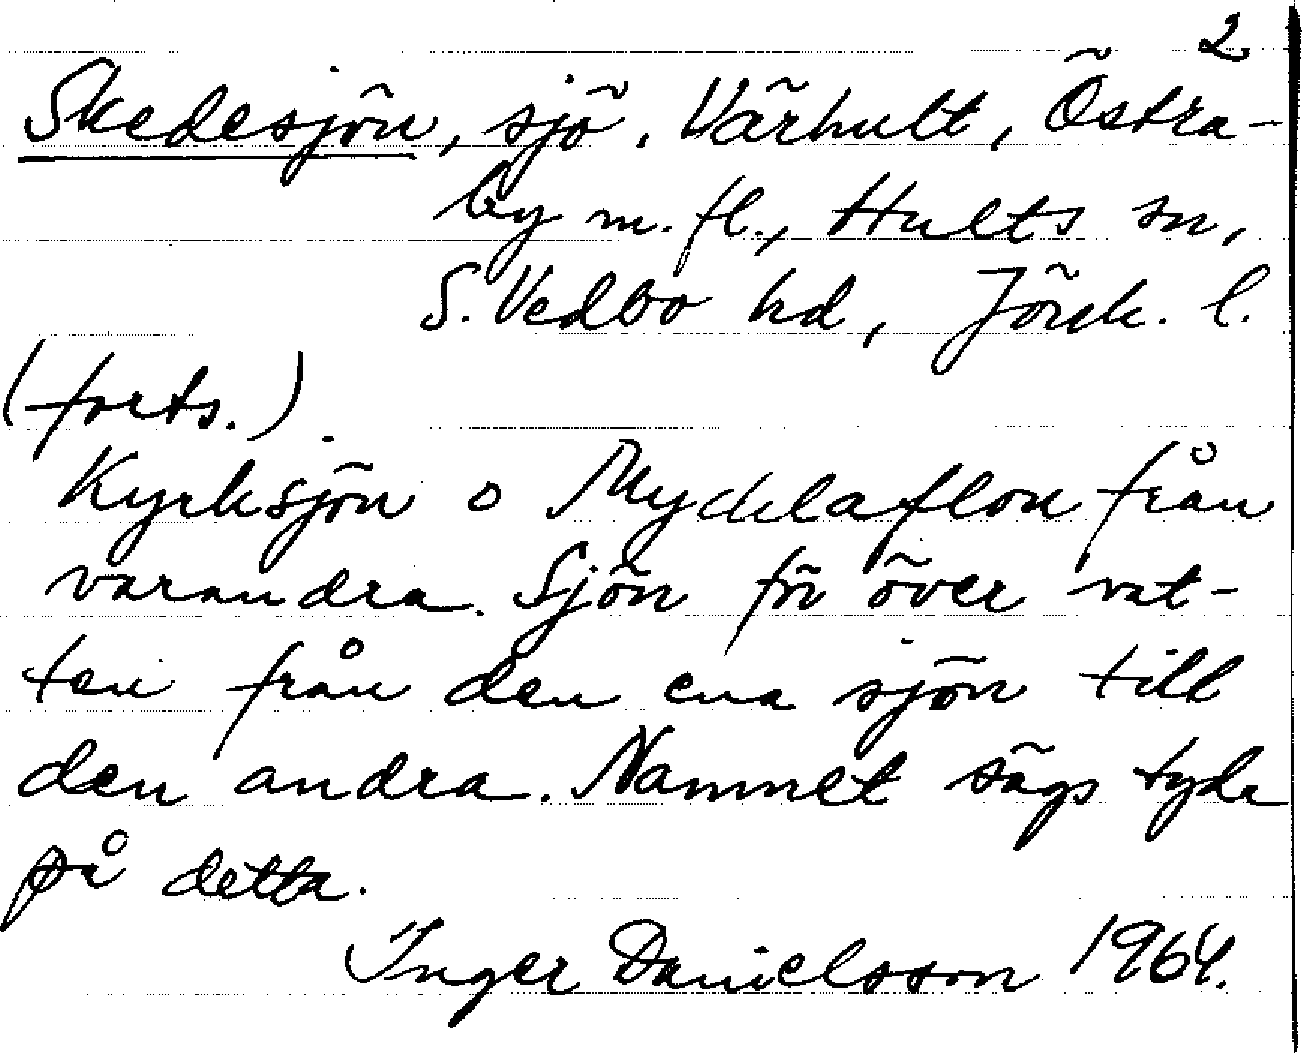 2
Skedesjön, sjö. Värhult, Östra-
by m.fl., Hults sn,
S. Vedbo hd, Jönk. l.
(forts.)
Kyrksjön o Myckelaflon från
varandra. Sjön för över vat-
ten från den ena sjön till
den andra. Namnet sägs tyda
på detta.
Inger Danielsson 1964.